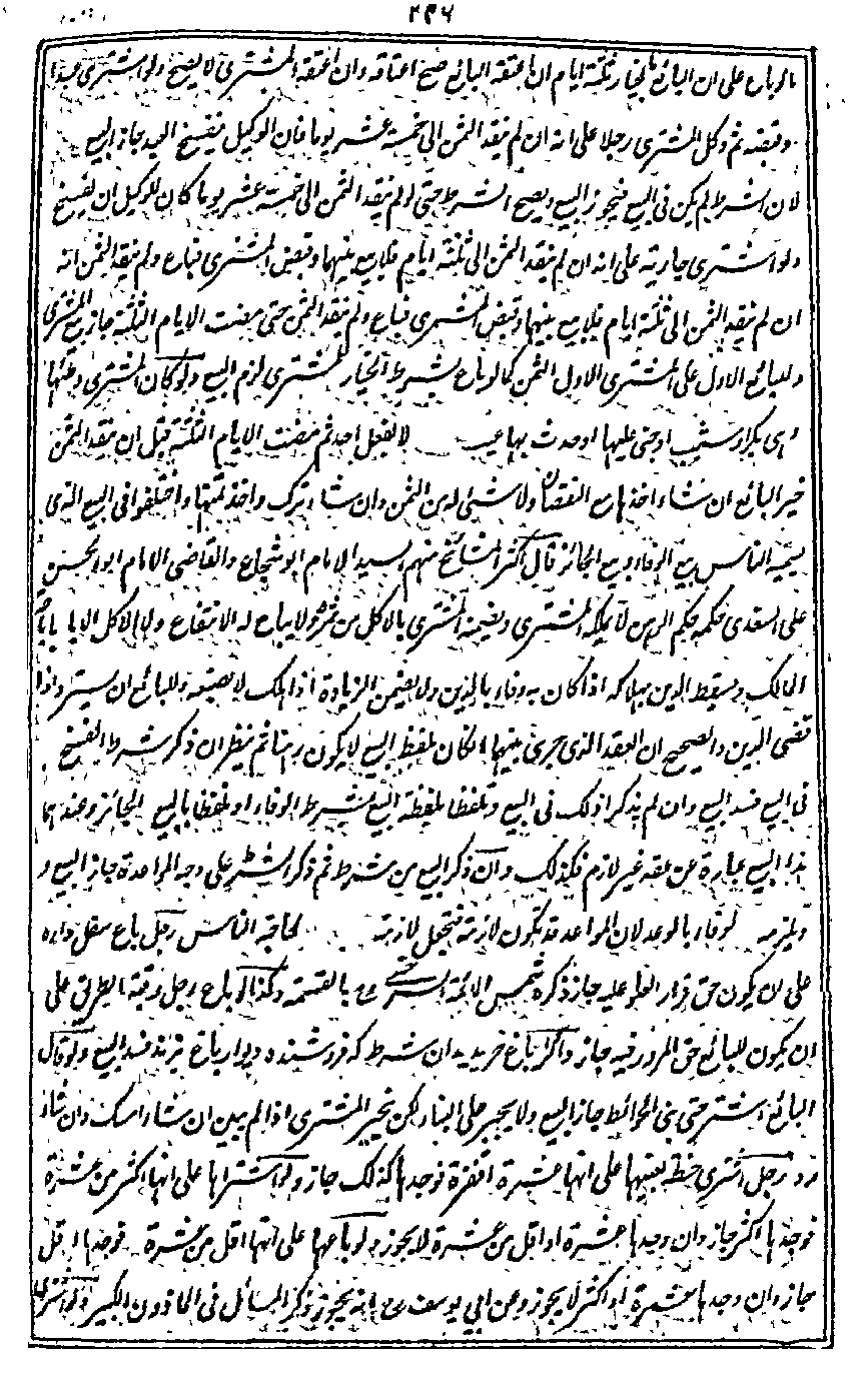 ۲۴۶
كما لو باع على ان البائع بالخيار ثلثة ايام ان اعتقه البائع صح اعتاقه وان اعتقه المشترى لا يصح ولو اشترى عبدا
وقبضه ثم وكل المشترى رجلا على انه ان لم ينقد الثمن الى خمسة عشر يوما فان الوكيل يفسخ العقد جاز البيع
لان الشرط لم يكن فى البيع فيجوز البيع ويصح الشرط حتى لو لم ينقد الثمن الى خمسة عشر يوما كان للوكيل ان يفسخ
ولو اشترى جارية على انه ان لم ينقد الثمن الى ثلثة ايام فلا بيع بينهما وقبض المشترى فباع ولم ينقد الثمن انه
ان لم ينقد الثمن الى ثلثة ايام فلا بيع بينهما وقبض المشترى فباع ولم ينقد الثمن حتى مضت الايام الثلثة جاز بيع المشترى
وللبائع الاول على المشترى الاول الثمن كما لو باع بشرط الخيار للمشترى لزم البيع ولو كان المشترى وطئها
وهى بكر او ثيب او جنى عليها او حدث بها عيب لا بفعل احد ثم مضت الايام الثلثة قبل ان ينقد الثمن
خير البائع ان شاء اخذها مع النقصان ولا شئ له من الثمن وان شاء ترك واخذ ثمنها واختلفوا فى البيع الذى
يسميه الناس بيع الوفاء وبيع الجائز قال اكثر المشائخ منهم السيد الامام ابو شجاع والقاضى الامام ابو الحسن
على السغدى حكمه حكم الرهن لا يملكه المشترى ويضمن المشترى بالاكل من ثمره ولا يباح له الانتفاع ولا الاكل الا باباحة
المالك ويسقط الدين بهلاكه اذا كان به وفاء بالدين ولا يضمن الزيادة اذا هلك لا بصنعه وللبائع ان يسترد اذا
قضى الدين والصحيح ان العقد الذى جرى بينهما ان كان بلفظ البيع لا يكون رهنا ثم ينظر ان ذكر شرط الفسخ
فى البيع فسد البيع وان لم يذكرا ذلك فى البيع وتلفظا بلفظة البيع بشرط الوفاء او تلفظا بالبيع الجائز وعندهما
هذا البيع عبارة عن عقد غير لازم فكذلك وان ذكر البيع من شرط ثم ذكر الشرط على وجه المواعدة جاز البيع و
ويلزمه الوفاء بالوعد لان المواعدة قد تكون لازمة فتجعل لازمة لحاجة الناس رجل باع سفل داره
على ان يكون حق قرار العلو عليه جاز ذكره شمس الائمة السرخسى رح بالقسمة وكذا لو باع رجل رقبة الطريق على
ان يكون للبائع حق المرور فيه جاز واگر باغ خريد بدان شرط كه فروشنده ديوار باغ بزند فسد البيع ولو قال
البائع اشتر حتى بنى الحوائط جاز البيع ولا يجبر على البناء لكن يخير المشترى اذا لم يبن ان شاء امسك وان شاء
رد رجل اشترى حنطة بعينها على انها عشرة اقفزة فوجدها كذلك جاز ولو اشتراها على انها اكثر من عشرة
فوجدها اكثر جاز وان وجدها عشرة او اقل من عشرة لا يجوز ولو باعها على انها اقل من عشرة فوجدها اقل
جاز وان وجدها عشرة او اكثر لا يجوز وعن ابى يوسف رح انه يجوز وذكر المسائل فى الماذون الكبير ولو اشترى